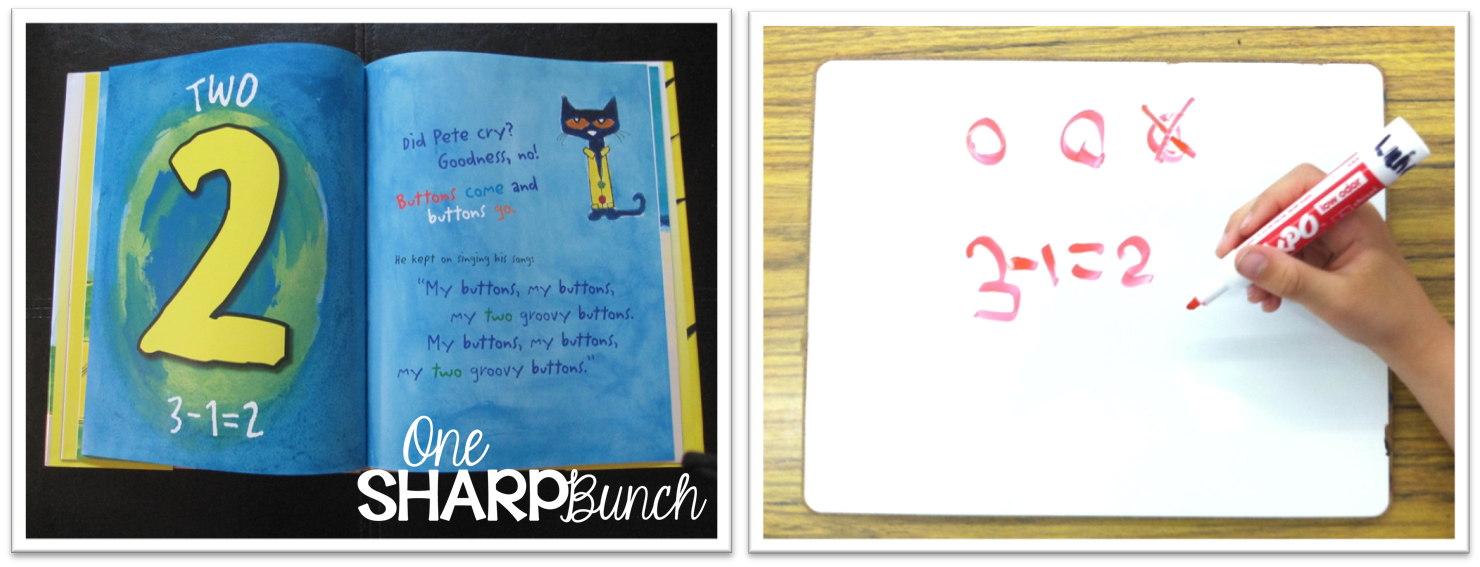 TWO
2
3-1=2
Did Pete cry?
Goodness, no!
Buttons come and
buttons go.
He kept on singing his song:
"My buttons, my buttons,
my two groovy buttons.
My buttons, my buttons,
my two groovy buttons."
One
SHARP Bunch
3-1=2
EXPO
low odor